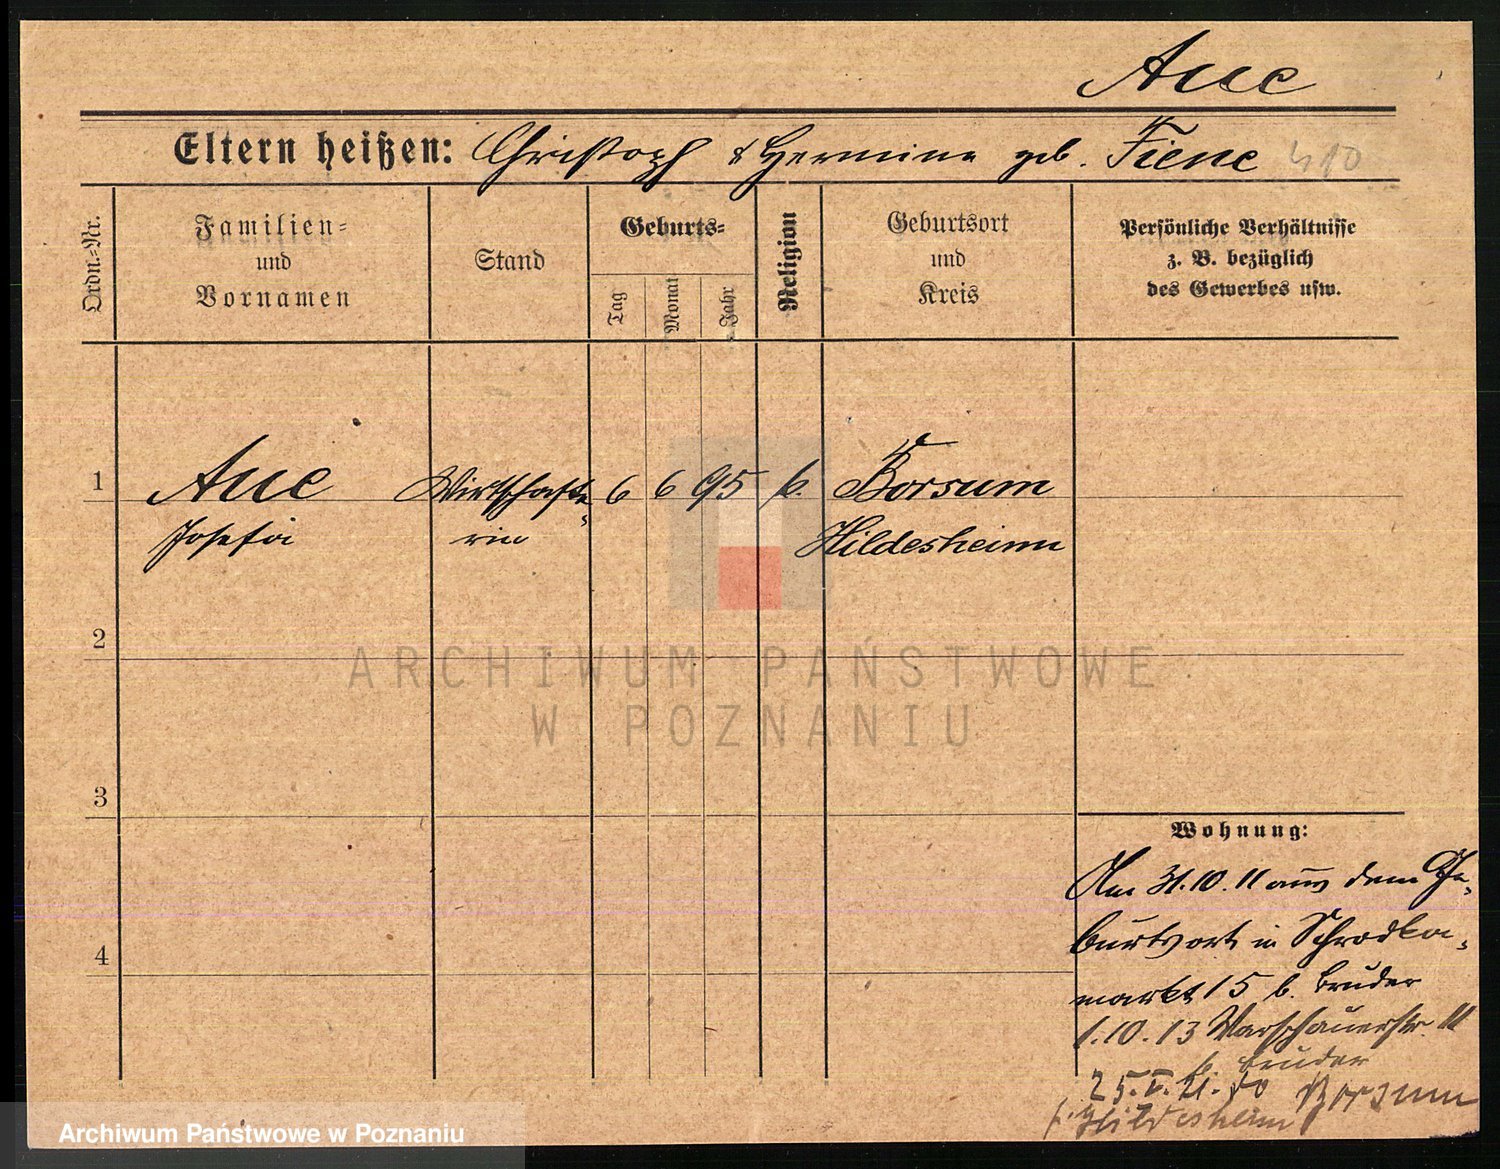 Aue
Eltern heißen: Christoph & Hermine geb. Fiene 410
Ordn.-Nr.
Familien=
und
Vornamen
Stand
Geburts=
Tag
Monat
Jahr
Religion
Geburtsort
und
Kreis
Persönliche Verhältnisse
z. B. bezüglich
des Gewerbes usw.
1 Aue Wirtschafte= 6 6 95 k. Borsum
Josefa rin Hildesheim
2
ARCHIWUM PAŃSTWOWE
W POZNANIU
3
Wohnung:
Am 31.10.11 aus dem Ge=
burtsort in Schrodka=
4
markt 15 b. Bruder
1.10.13 Warschauerstr. 11
b. Bruder
25.V.21. Borsum
Hildesheim
Archiwum Państwowe w Poznaniu